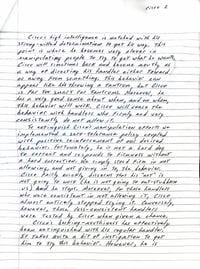 Cisco 2
Cisco's high intelligence is matched with his
strong-willed determination to get his way. This
point is where he becomes very clever in
manipulating people to try to get what he wants.
Cisco will sometimes bark and become mouthy as
a way of directing his handler either toward
or away from something. This behavior can
appear like his throwing a tantrum, but Cisco
is far too smart for tantrums. Moreover, he
has a very good sense about when, and on whom,
the behavior will work. Cisco will cease the
behavior with handlers who firmly and very
consistently do not allow it.
To extinguish Cisco's manipulation efforts we
implemented a zero-tolerance policy coupled
with positive reinforcement of our desired
behaviors. Fortunately, he is not a hard dog
to correct and responds to
a hard correction. We simply stood firm in not
allowing, and not giving in to, the behavior.
Cisco fairly quickly discovered that his "act" is
not going to work (he is not going to out-stubborn
us) and he stops. Moreover, for those handlers
who were consistent in not allowing it, Cisco
almost entirely stopped trying it. Conversely,
however, those less-consistent handlers
were tested by Cisco when given a chance.
Cisco's barking-mouthiness has effectively
been extinguished with his regular handler.
It takes quite a bit of instigation to get
him to try this behavior. However, he is